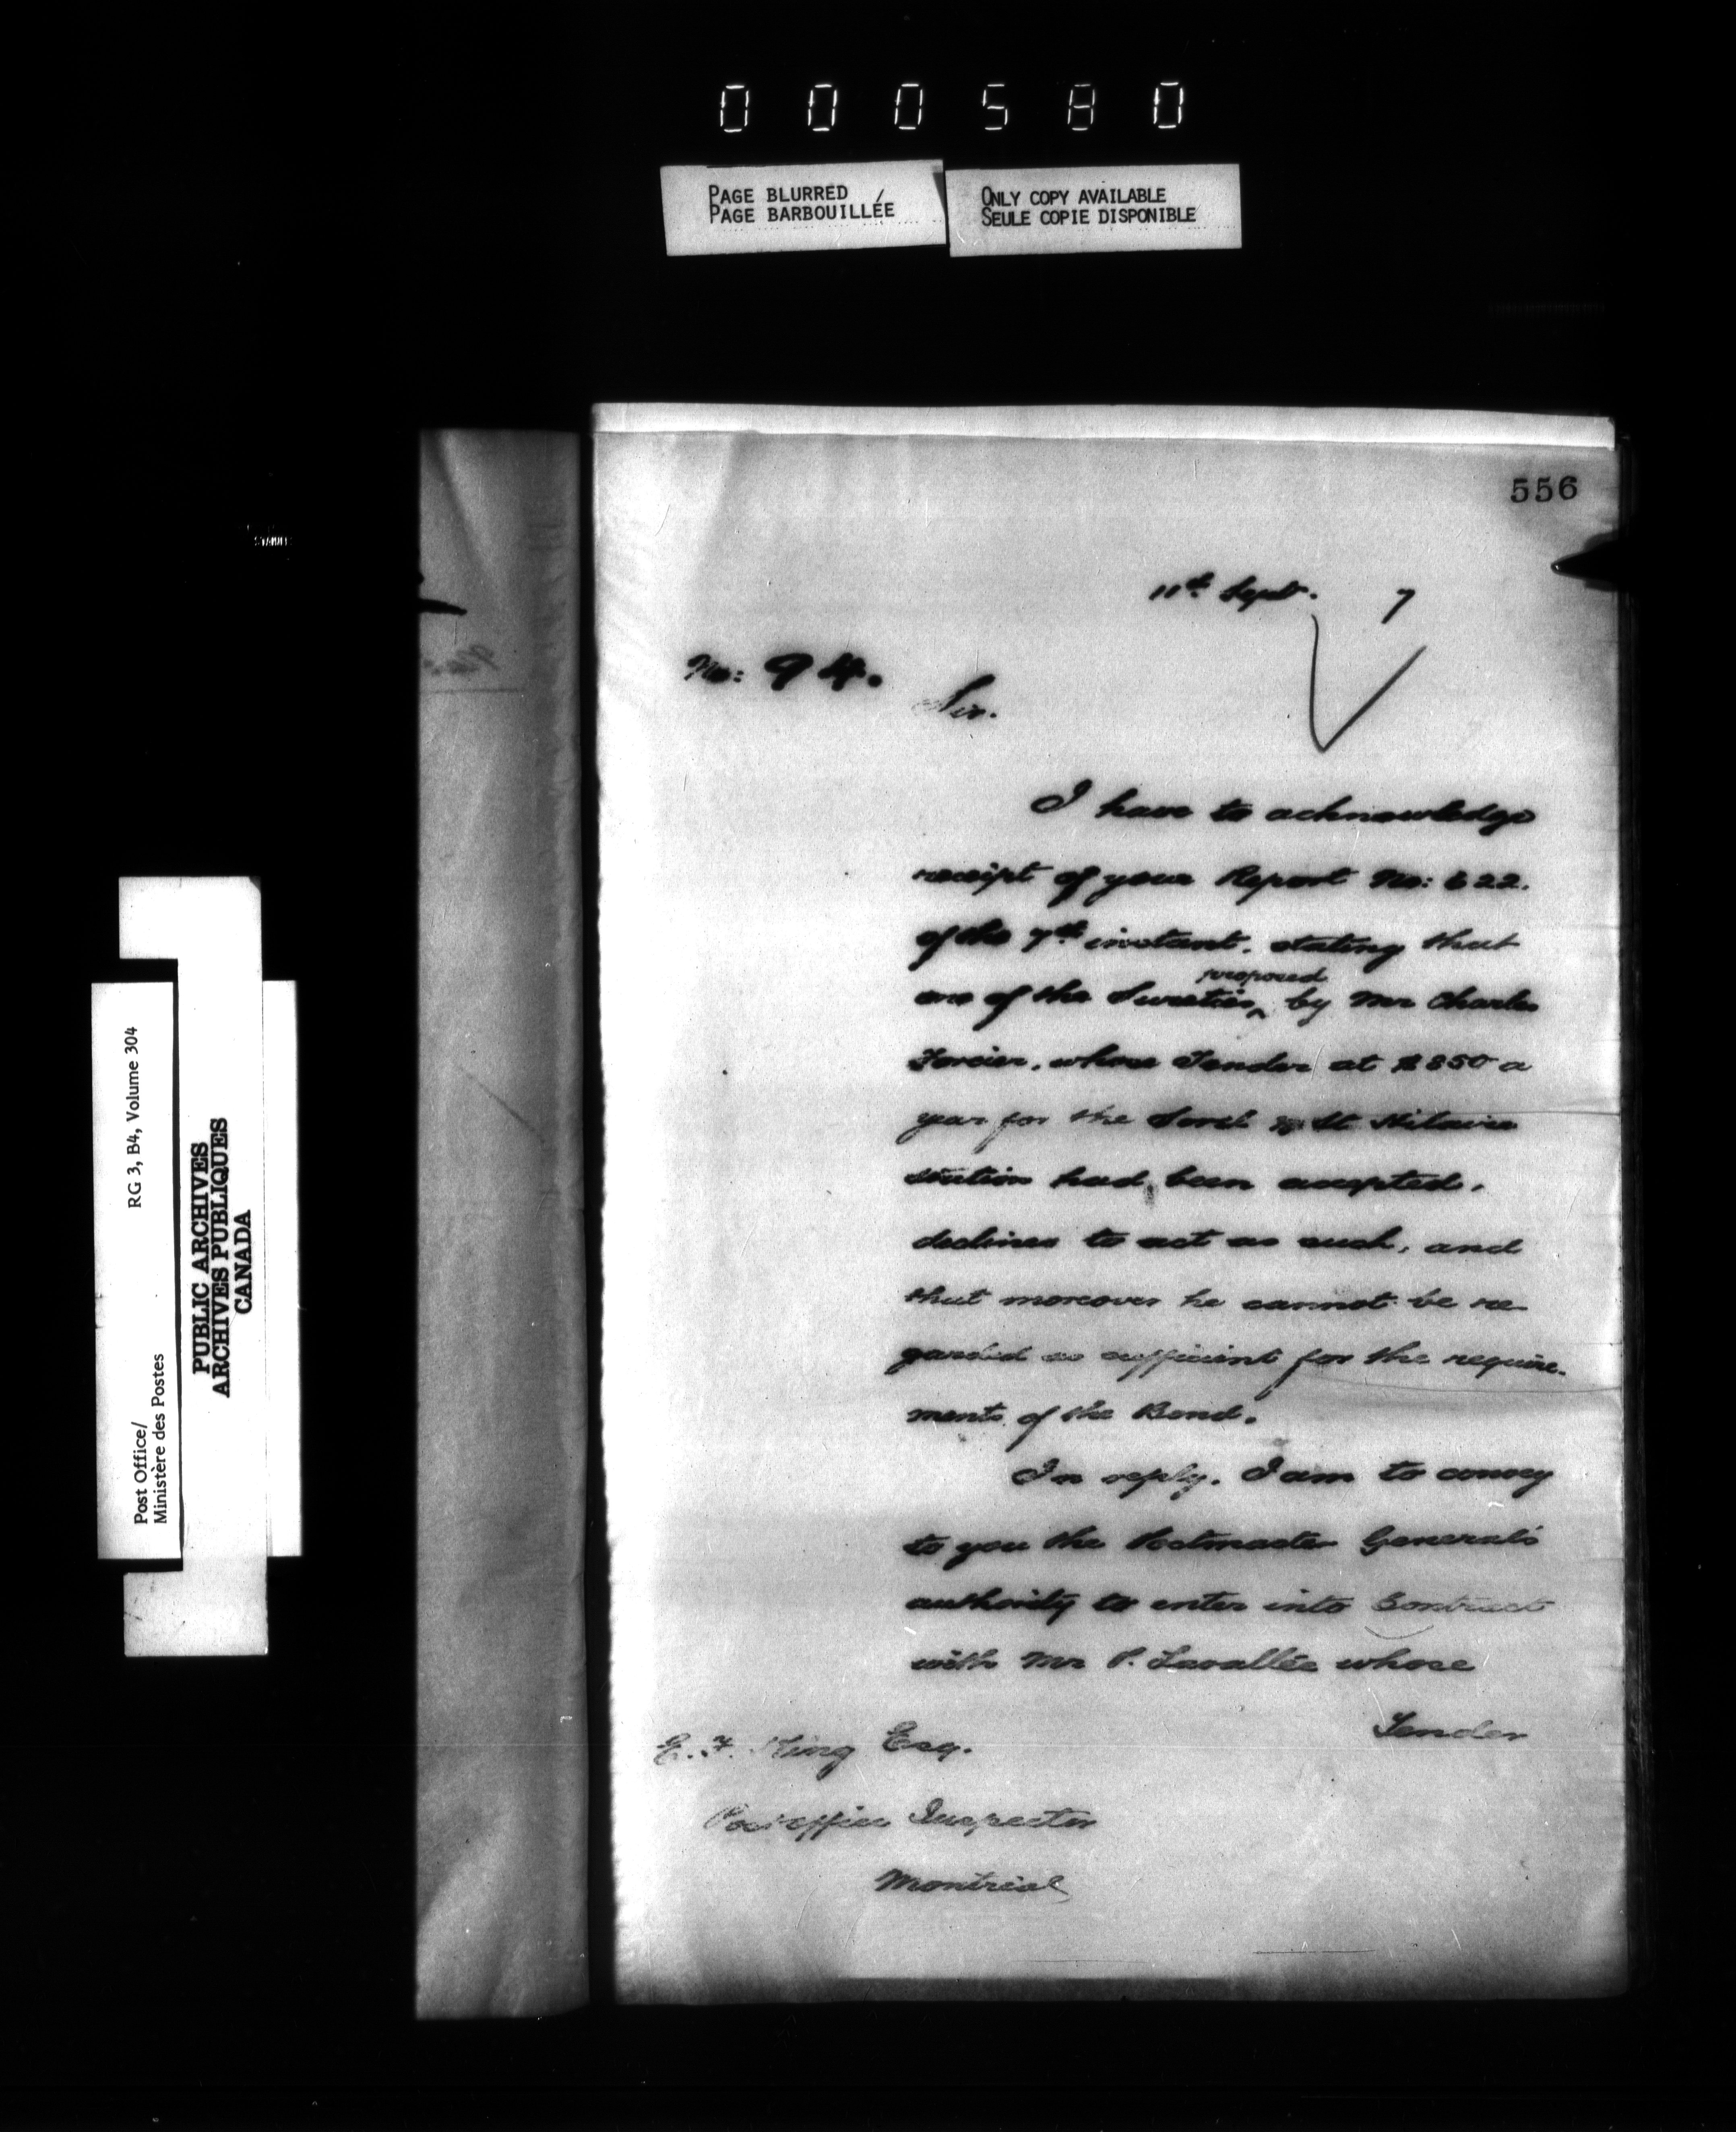 000580
PAGE BLURRED
PAGE BARBOUILLÉE
ONLY COPY AVAILABLE
SEULE COPIE DISPONIBLE
556
11th Sept. 7
No: 94.
Sir.
I have to acknowledge
receipt of your Report No: 622.
of the 7th instant, stating that
one of the Sureties proposed by Mr Charles
Forcier, whose Tender at $850 a
year for the Sorel & St Hilaire
Station had been accepted,
declines to act as such, and
that moreover he cannot be re-
garded as sufficient for the require-
ments of the Bond.
In reply, I am to convey
to you the Postmaster General's
authority to enter into Contract
with Mr P. Lavallée whose
Tender
E. F. King Esq.
Post office Inspector
Montreal
RG 3, B4, Volume 304
Post Office/
Ministère des Postes
PUBLIC ARCHIVES
ARCHIVES PUBLIQUES
CANADA